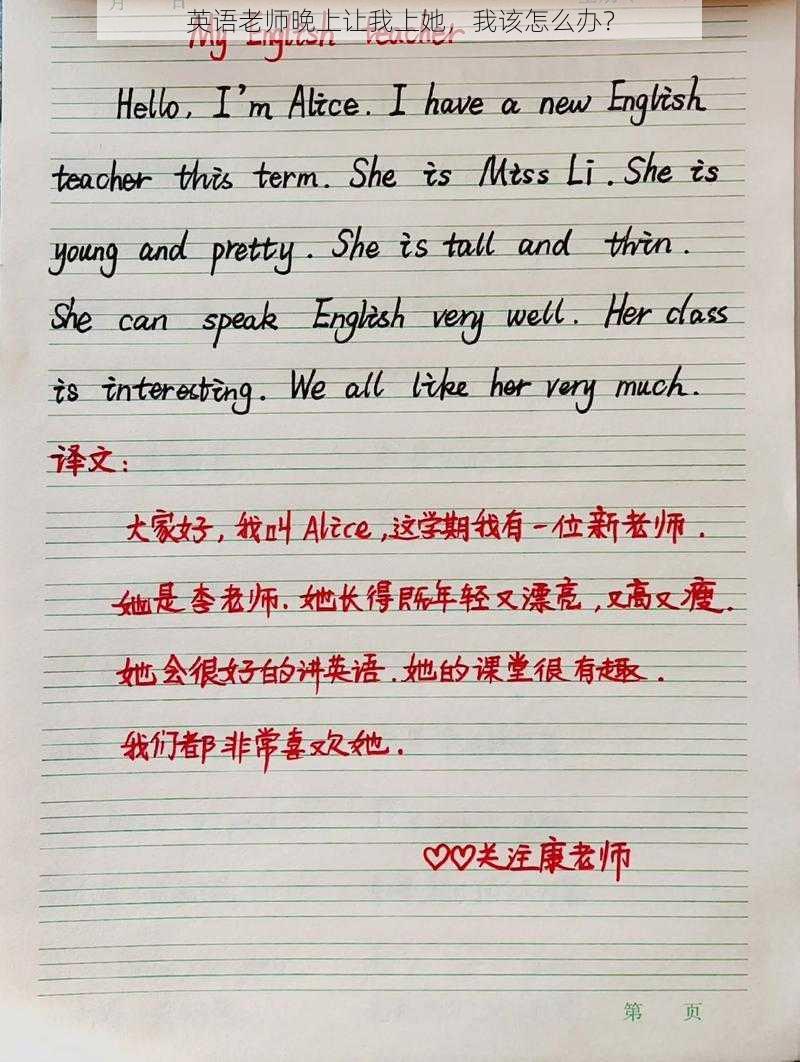 英语老师晚上让我上她，我该怎么办？
My English teacher
Hello, I'm Alice. I have a new English
teacher this term. She is Miss Li. She is
young and pretty. She is tall and thin.
She can speak English very well. Her class
is interesting. We all like her very much.
译文:
大家好,我叫Alice,这学期我有一位新老师.
她是李老师.她长得既年轻又漂亮,又高又瘦.
她会很好的讲英语.她的课堂很有趣.
我们都非常喜欢她.
♡♡关注康老师
第 页